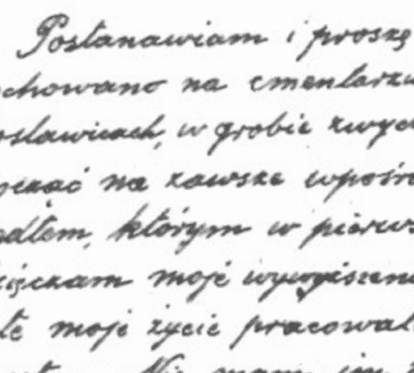 Postanawiam i proszę
chowano na cmentarzu
osławicach, w grobie zwycz
cząć na zawsze wpośró
odłem, którym w pierws
zięczam moje wywyższeni
łe moje życie pracowałe
Nie mam im